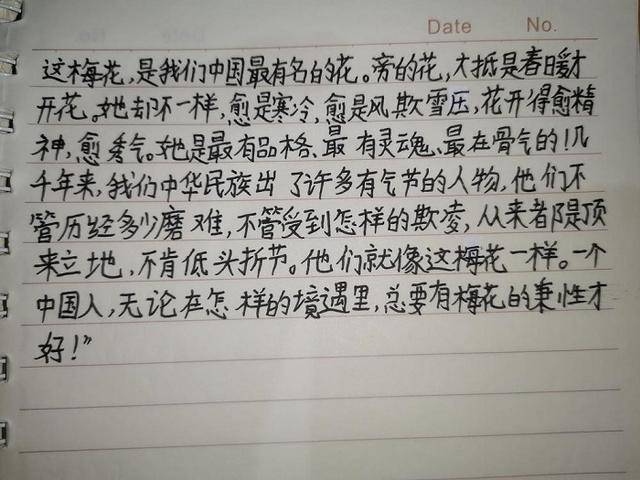 Date No.
这梅花,是我们中国最有名的花。旁的花,大抵是春暖才
开花。她却不一样,愈是寒冷,愈是风欺雪压,花开得愈精
神,愈秀气。她是最有品格、最有灵魂、最在骨气的!几
千年来,我们中华民族出了许多有气节的人物,他们不
管历经多少磨难,不管受到怎样的欺凌,从来都是顶
来立地,不肯低头折节。他们就像这梅花一样。一个
中国人,无论在怎样的境遇里,总要有梅花的秉性才
好!”